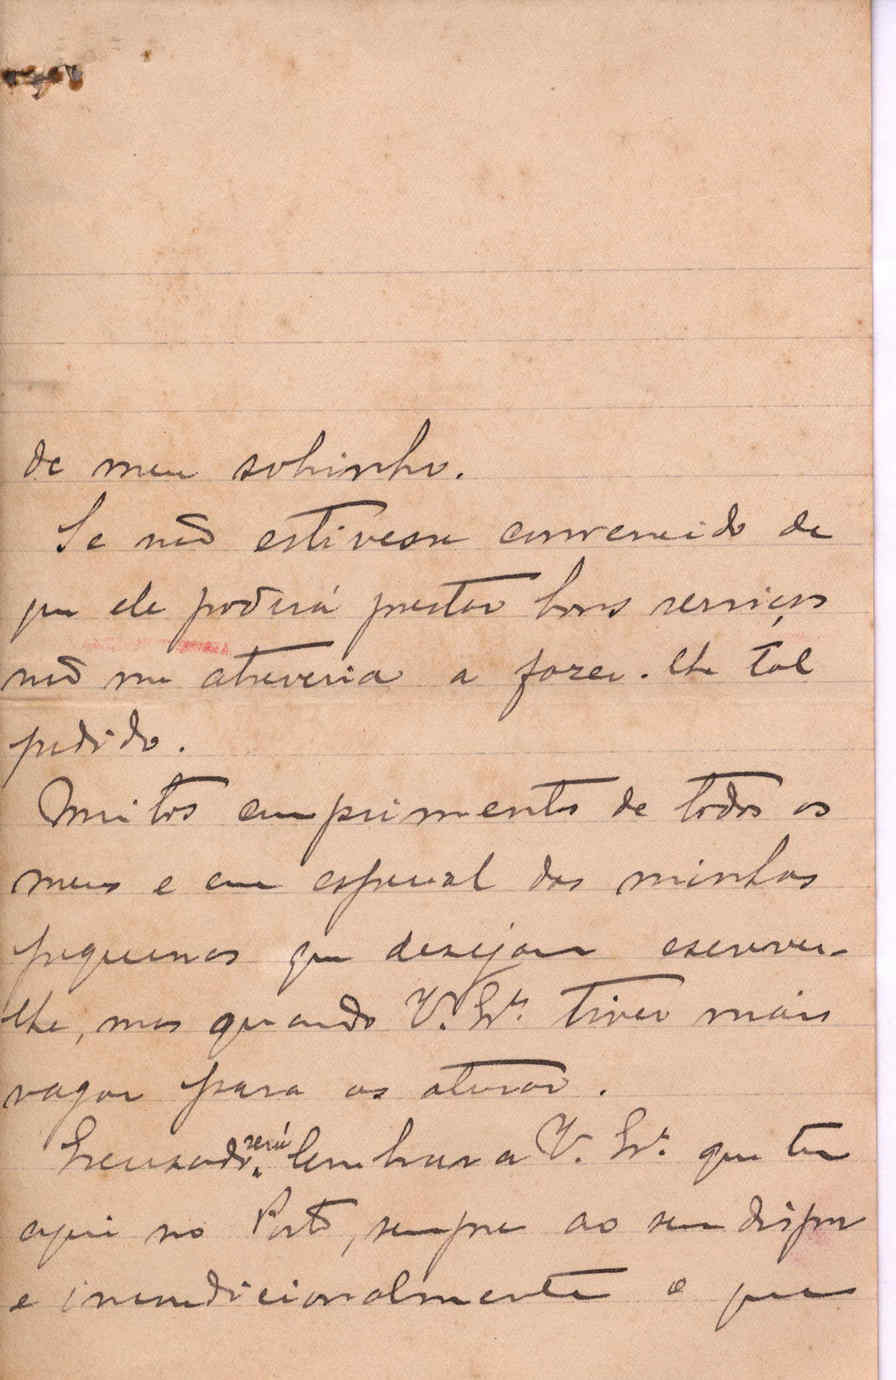 de meu sobrinho.
Se não estivesse convencido de
que ele poderá prestar bons serviços
não me atreveria a fazer-lhe tal
pedido.
Muitos cumprimentos de todos os
meus e em especial das minhas
pequenas que desejam escrever-
lhe, mas quando V. Exª tiver mais
vagar para as aturar.
Escusado será lembrar a V. Exª que tem
aqui no Porto, sempre ao seu dispor
e incondicionalmente o que